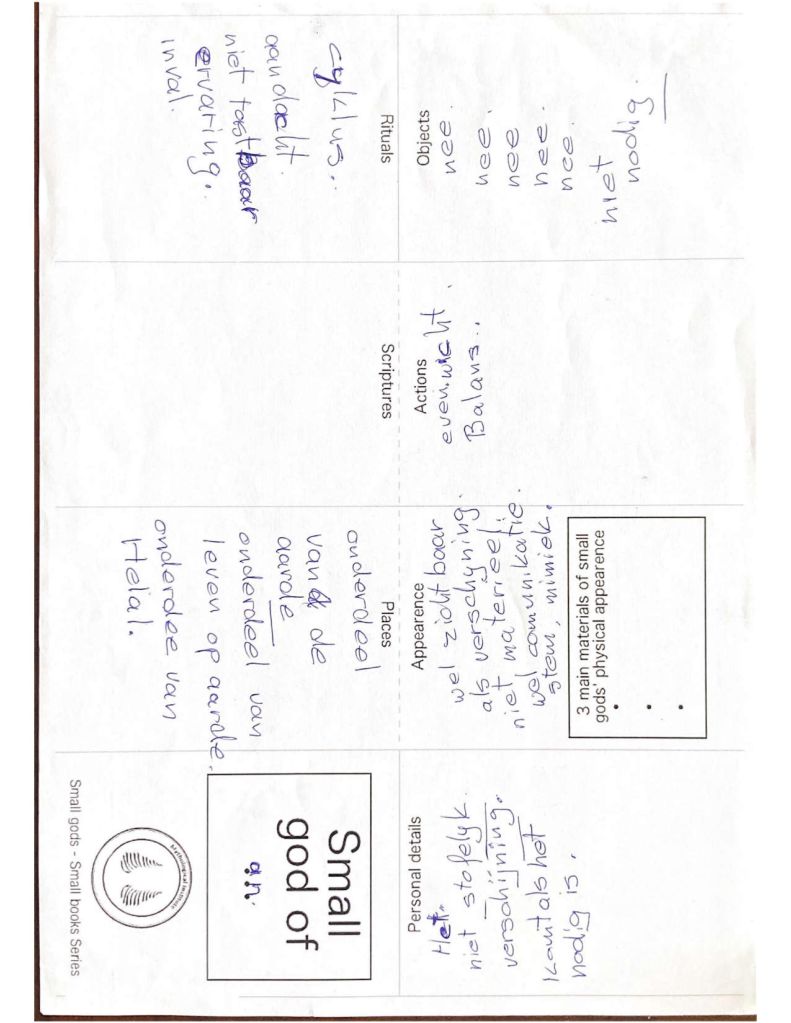 Small
god of
an.
Mythological Institute
Small gods - Small books Series
Places
onderdeel
van de
aarde
onderdeel van
leven op aarde.
onderdee van
Helal.
Scriptures
Rituals
cyklus..
aandacht.
niet tastbaar
ervaring.
inval.
Personal details
Het.
niet stofelyk.
verschijning.
komt als het
nodig is.
Appearence
wel zichtbaar
als verschyning.
niet materieel.
wel comunikatie.
stem, mimiek.
3 main materials of small
gods' physical appearence
•
•
•
Actions
even.wicht.
Balans..
Objects
nee.
nee.
nee
nee.
nee.
niet
nodig